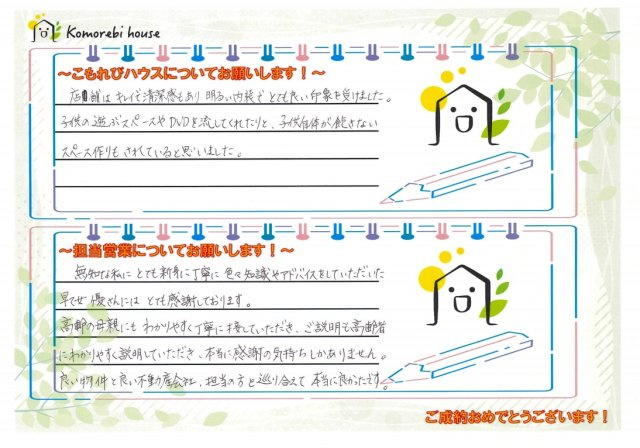 Komorebi house
~こもれびハウスについてお願いします!~
店舗はキレイで清潔感もあり 明るい内装で とても良い印象を受けました。
子供の遊ぶスペースやDVDを流してくれたりと、子供自体が飽きない
スペース作りもされていると思いました。
~担当営業についてお願いします!~
無知な私に とても親身に丁寧に 色々知識やアドバイスをしていただいた
優さんには とても感謝しております。
高齢の母親にも わかりやすく丁寧に 接していただき、ご説明も高齢者
にわかりやすく説明していただき、本当に感謝の気持ちしかありません。
良い物件と良い不動産会社、担当の方と巡り合えて 本当に良かったです。
ご成約おめでとうございます!